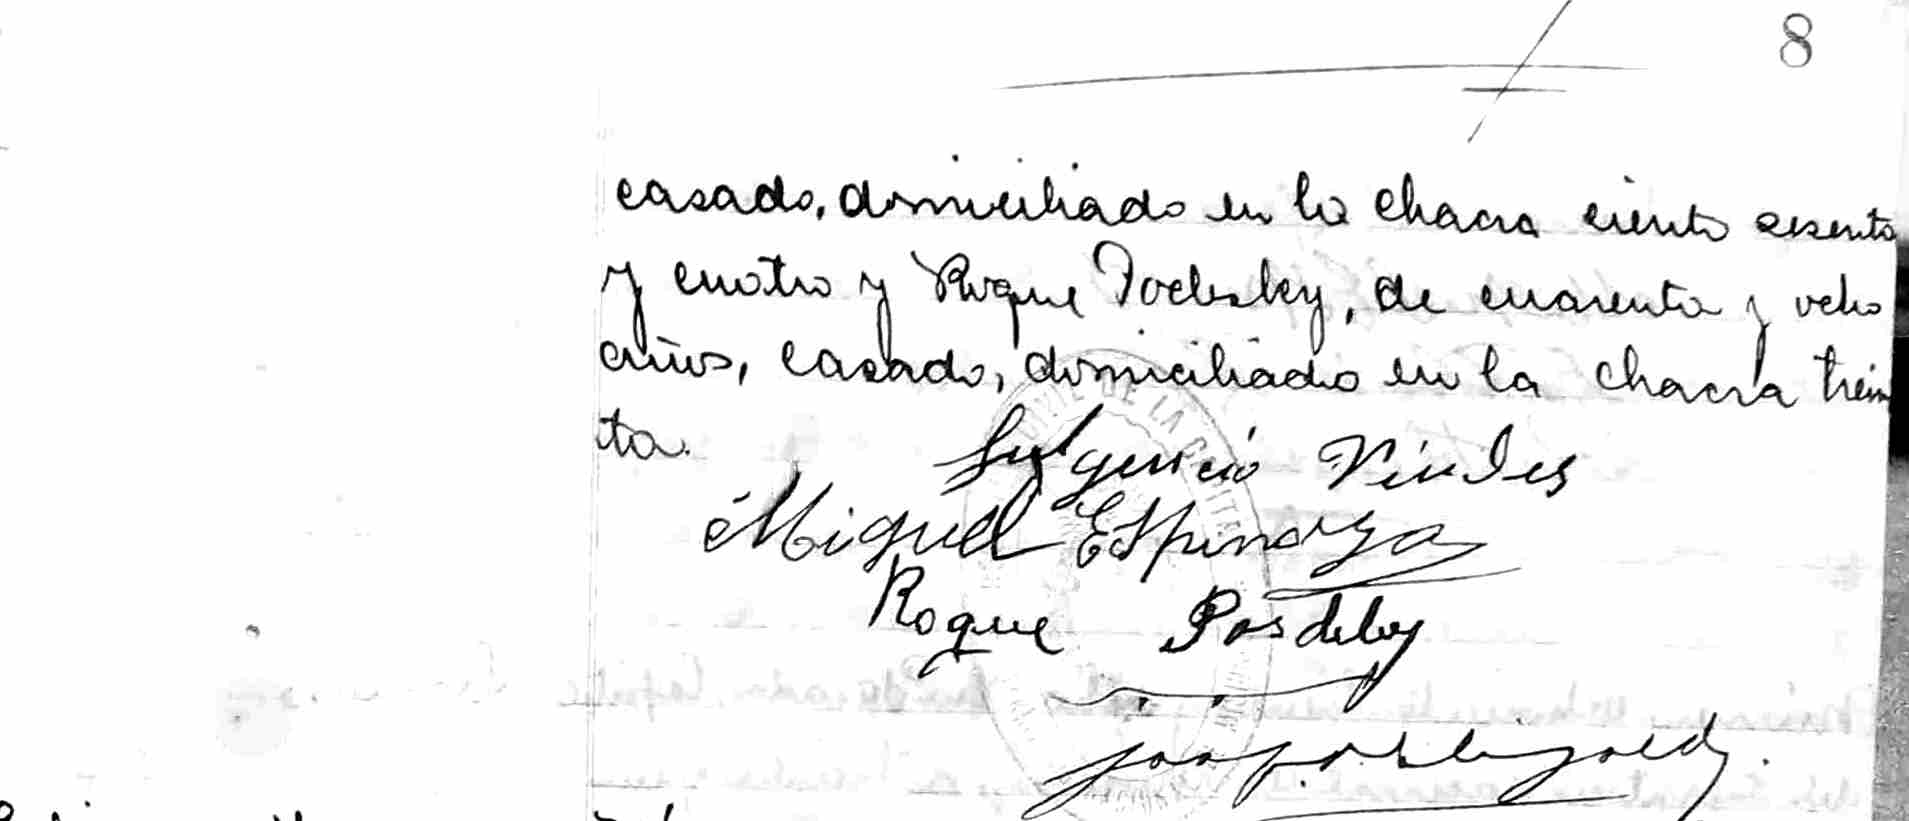 8
casado, domiciliado en la chacra ciento sesenta
y cuatro y Roque Podlesky, de cuarenta y ocho
años, casado, domiciliado en la chacra trein
ta.
Fulgencio Viudes
Miguel Espinoza
Roque